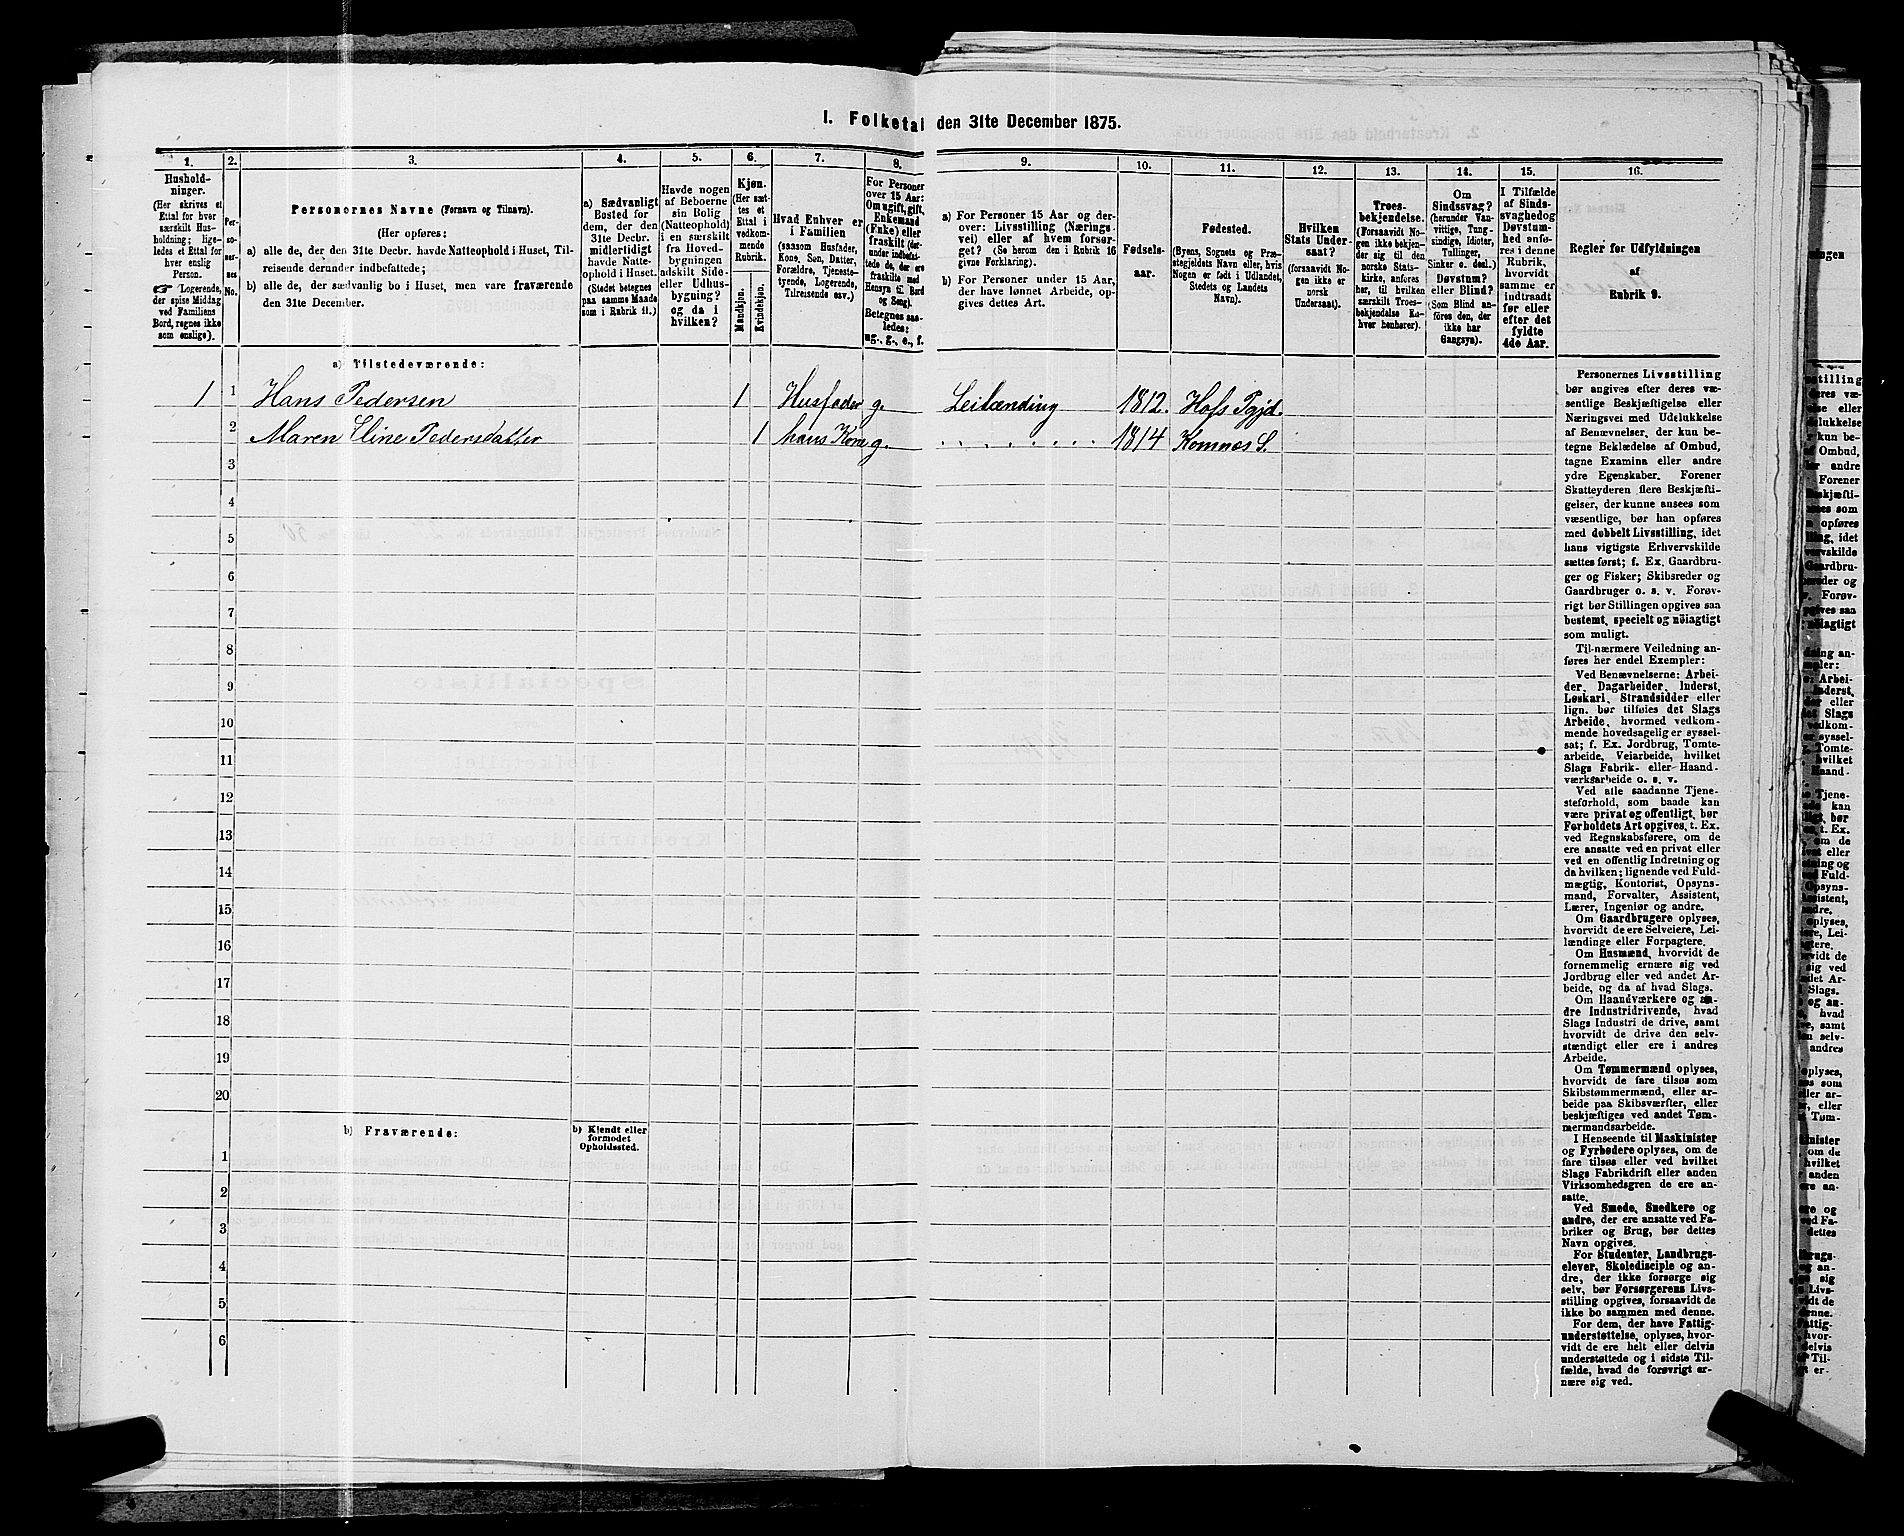 I. Folketal den 31te December 1875.
1. 2. 3. 4. 5. 6. 7. 8. 9. 10. 11. 12. 13. 14. 15. 16.
Hushold-
ninger.
(Her skrives et
Ettal for hver
særskilt Hus-
holdning; lige-
ledes et Ettal for
hver enslig
Person.
☞ Logerende,
der spise Middag
ved Familiens
Bord, regnes ikke
som enslige).
Per-
so-
ner-
nes
No.
Personernes Navne (Fornavn og Tilnavn).
(Her opføres:
a) alle de, der den 31te Decbr. havde Natteophold i Huset, Til-
reisende derunder indbefattede;
b) alle de, der sædvanlig bo i Huset, men vare fraværende
den 31te December.
a) Sædvanligt
Bosted for
dem, der den
31te Decbr.
midlertidigt
havde Natte-
ophold i Huset.
(Stedet betegnes
paa samme Maade
som i Rubrik 11.)
Havde nogen
af Beboerne
sin Bolig
(Natteophold)
i en særskilt
fra Hoved-
bygningen
adskilt Side-
eller Udhus-
bygning?
og da i
hvilken?
Kjøn.
(Her sæt-
tes et
Ettal i
vedkom-
mende
Rubrik.
Mandkjøn.
Kvindekjøn.
Hvad Enhver er
i Familien
(saasom Husfader,
Kone, Søn, Datter,
Forældre, Tjeneste-
tyende, Logerende,
Tilreisende osv.)
For Personer
over 15 Aar:
Om ugift, gift,
Enkemand
(Enke) eller
fraskilt (der-
under indbefat-
tede de, der ere
fraskilte med
Hensyn til Bord
og Seng).
Betegnes saa-
ledes:
ug., g., e., f.
a) For Personer 15 Aar og der-
over: Livsstilling (Nærings-
vei) eller af hvem forsør-
get? (Se herom den i Rubrik 16
givne Forklaring).
b) For Personer under 15 Aar,
der have lønnet Arbeide, op-
gives dettes Art.
Fødsels-
aar.
Fødested.
(Byens, Sognets og Præ-
stegjeldets Navn eller, hvis
Nogen er født i Udlandet,
Stedets og Landets
Navn).
Hvilken
Stats Under-
saat?
(forsaavidt No-
gen ikke er
norsk
Undersaat).
Troes-
bekjendelse.
(Forsaavidt No-
gen ikke bekjen-
der sig til den
norske Stats-
kirke, anføres
her, til hvilken
særskilt Troes-
bekjendelse En-
hver henhører).
Om
Sindssvag?
(herunder Van-
vittige, Tung-
sindige, Idioter,
Tullinger,
Sinker o. desl.)
Døvstum?
eller Blind?
(Som Blind an-
føres den, der
ikke har
Gangsyn).
I Tilfælde
af Sinds-
svaghed og
Døvstum-
hed anfø-
res i denne
Rubrik,
hvorvidt
samme er
indtraadt
før eller
efter det
fyldte
4de Aar.
Regler for Udfyldningen
af
Rubrik 9.
a) Tilstedeværende:
1 1 Hans Pedersen 1 Husfader g. Leilænding 1812. Hofs Pgjd.
2 Maren Eline Pedersdatter 1 hans Kone g. 1814 Komnæs S.
3
4
5
6
7
8
9
10
11
12
13
14
15
16
17
18
19
20
b) Fraværende:
b) Kjendt eller
formodet
Opholdssted.
1
2
3
4
5
6
Personernes Livsstilling
bør angives efter deres væ-
sentlige Beskjæftigelse eller
Næringsvei med Udelukkelse
af Benævnelser, der kun be-
tegne Beklædelse af Ombud,
tagne Examina eller andre
ydre Egenskaber. Forener
Skatteyderen flere Beskjæfti-
gelser, der kunne ansees som
væsentlige, bør han opføres
med dobbelt Livsstilling, idet
hans vigtigste Erhvervskilde
sættes først; f. Ex. Gaardbru-
ger og Fisker; Skibsreder og
Gaardbruger o. s. v. Forøv-
rigt bør Stillingen opgives saa
bestemt, specielt og nöiagtigt
som muligt.
Til nærmere Veiledning an-
føres her endel Exempler:
Ved Benævnelserne: Arbei-
der, Dagarbeider, Inderst,
Løskarl, Strandsidder eller
lign. bør tilføies det Slags
Arbeide, hvormed vedkom-
mende hovedsagelig er syssel-
sat; f. Ex. Jordbrug, Tomte-
arbeide, Veiarbeide, hvilket
Slags Fabrik- eller Haand-
værksarbeide o. s. v.
Ved alle saadanne Tjene-
steforhold, som baade kan
være privat og offentligt, bør
Forholdets Art opgives, t. Ex.
ved Regnskabsførere, om de
ere ansatte ved en privat eller
ved en offentlig Indretning og
da hvilken; lignende ved Fuld-
mægtig, Kontorist, Opsyns-
mand, Forvalter, Assistent,
Lærer, Ingeniør og andre.
Om Gaardbrugere oplyses,
hvorvidt de ere Selveiere, Lei-
lændinge eller Forpagtere.
Om Husmænd, hvorvidt de
fornemmelig ernære sig ved
Jordbrug eller ved andet Ar-
beide, og da af hvad Slags.
Om Haandværkere og an-
dre Industridrivende, hvad
Slags Industri de drive, samt
hvorvidt de drive den selv-
stændigt eller ere i andres
Arbeide.
Om Tømmermænd oplyses,
hvorvidt de fare tilsøs som
Skibstømmermænd, eller ar-
beide paa Skibsværfter, eller
beskjæftiges ved andet Tøm-
mermandsarbeide.
I Henseende til Maskinister
og Fyrbødere oplyses, om de
fare tilsøs eller ved hvilket
Slags Fabrikdrift eller anden
Virksomhedsgren de ere an-
satte.
Ved Smede, Snedkere og
andre, der ere ansatte ved Fa-
briker og Brug, bør dettes
Navn opgives.
For Studenter, Landbrugs-
elever, Skoledisciple og an-
dre, der ikke forsørge sig
selv, bør Forsørgerens Livs-
stilling opgives, forsaavidt de
ikke bo sammen med denne.
For dem, der have Fattig-
understøttelse, oplyses, hvor-
vidt de ere helt eller delvis
understøttede og i sidste Til-
fælde, hvad de forøvrigt er-
nære sig ved.